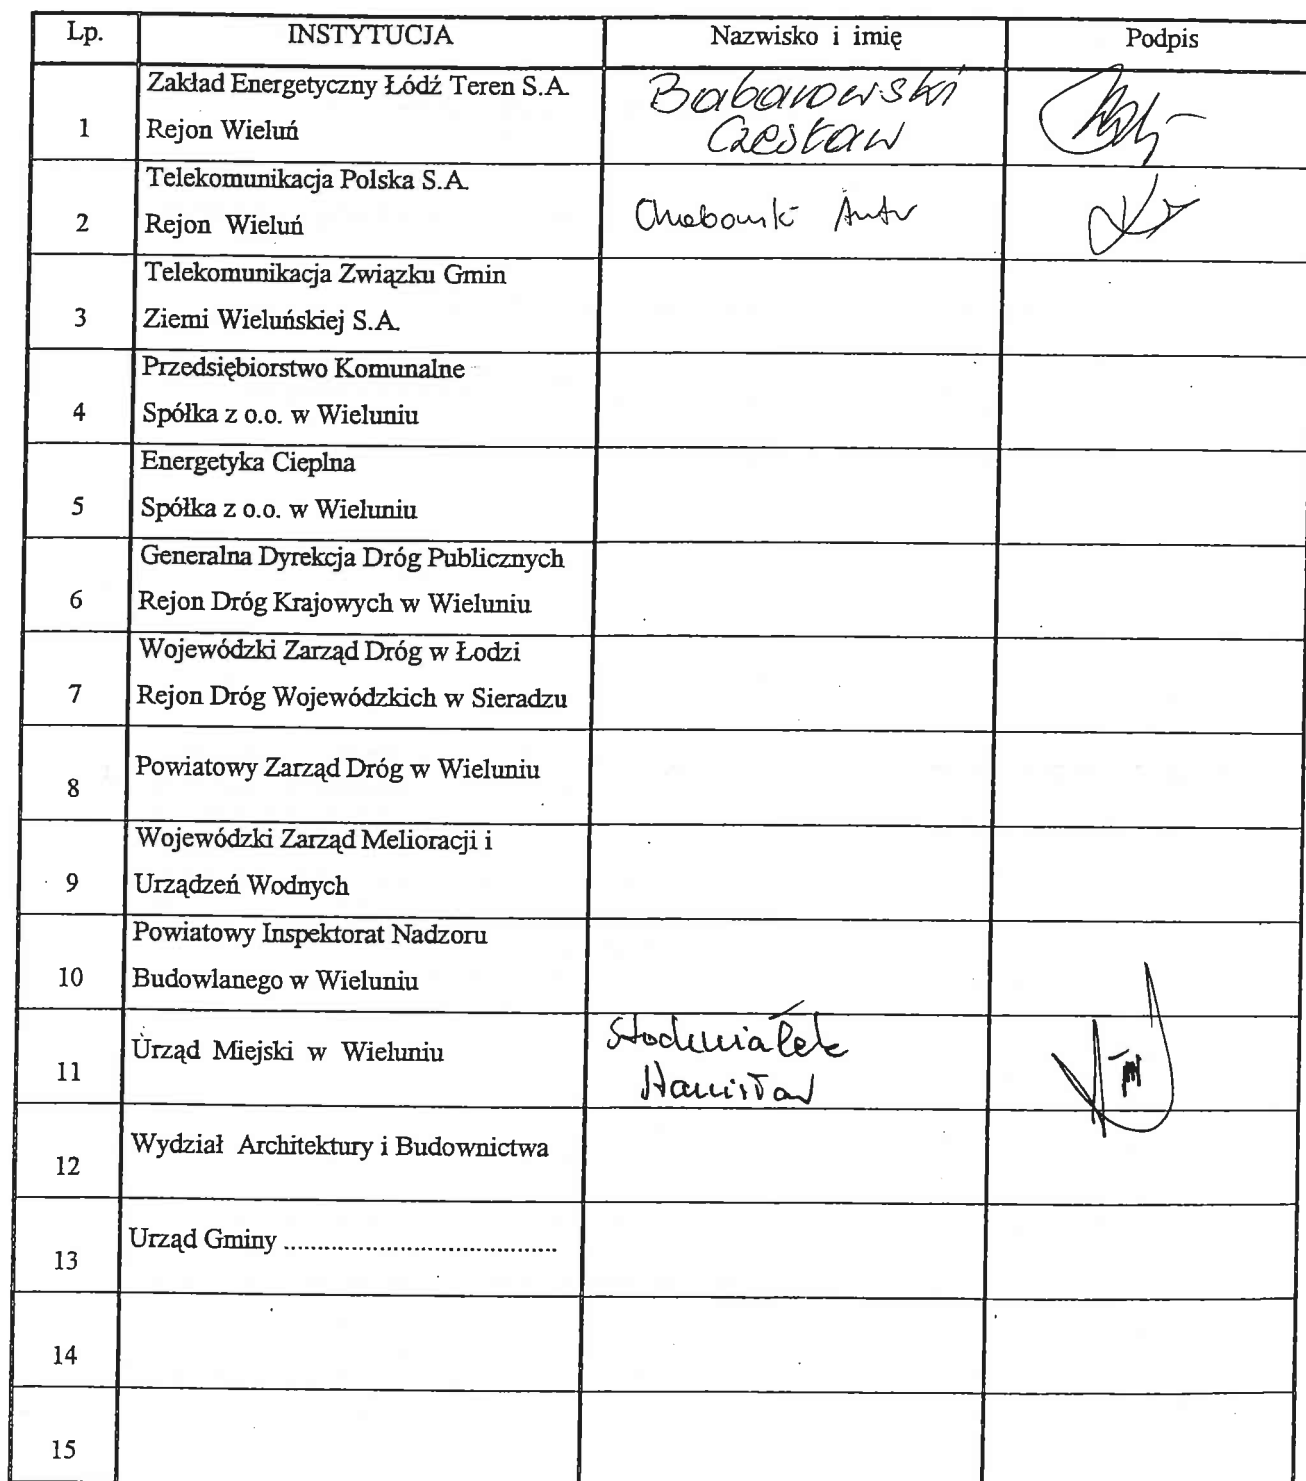 Lp. INSTYTUCJA Nazwisko i imię Podpis
Zakład Energetyczny Łódź Teren S.A. Babarowski
1 Rejon Wieluń Czesław
Telekomunikacja Polska S.A.
2 Rejon Wieluń
Telekomunikacja Związku Gmin
3 Ziemi Wieluńskiej S.A.
Przedsiębiorstwo Komunalne
4 Spółka z o.o. w Wieluniu
Energetyka Cieplna
5 Spółka z o.o. w Wieluniu
Generalna Dyrekcja Dróg Publicznych
6 Rejon Dróg Krajowych w Wieluniu
Wojewódzki Zarząd Dróg w Łodzi
7 Rejon Dróg Wojewódzkich w Sieradzu
8 Powiatowy Zarząd Dróg w Wieluniu
Wojewódzki Zarząd Melioracji i
9 Urządzeń Wodnych
Powiatowy Inspektorat Nadzoru
10 Budowlanego w Wieluniu
11 Urząd Miejski w Wieluniu
Stanisław
12 Wydział Architektury i Budownictwa
13 Urząd Gminy ..........................................
14
15